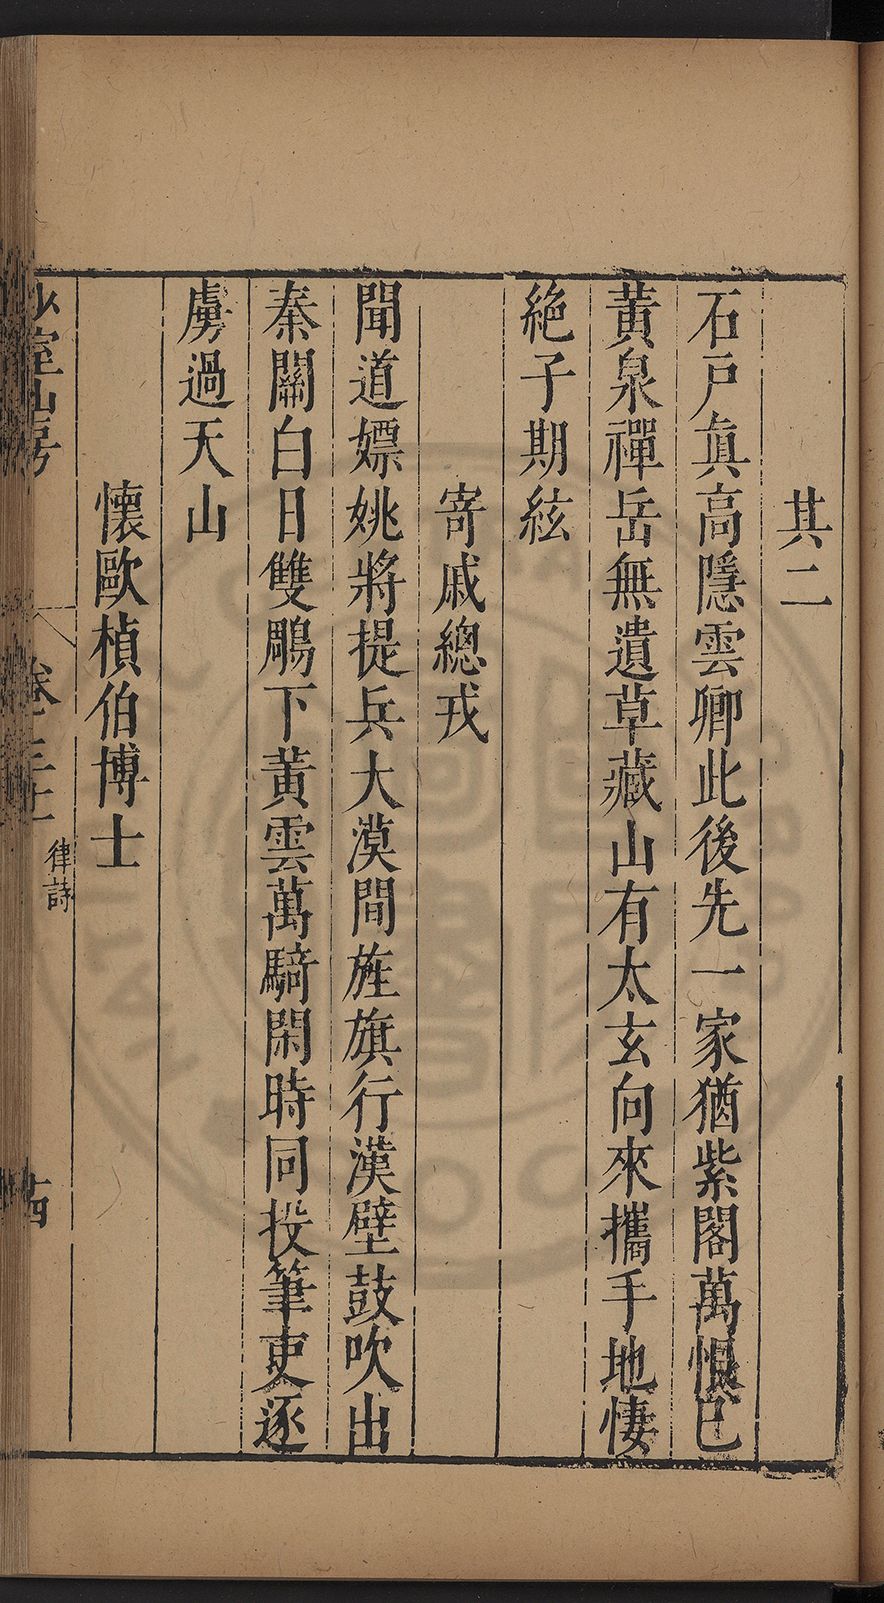 其二
石戸眞高隱雲卿此後先一家猶紫閣萬恨已
黃泉禪岳無遺草藏山有太玄向來攜手地悽
絶子期絃
寄戚總戎
聞道嫖姚將提兵大漠間旌旗行漢壁鼓吹出
秦關白日雙鵰下黃雲萬騎閑時同投筆吏逐
虜過天山
懷歐楨伯博士
少室山房
卷三十
律詩